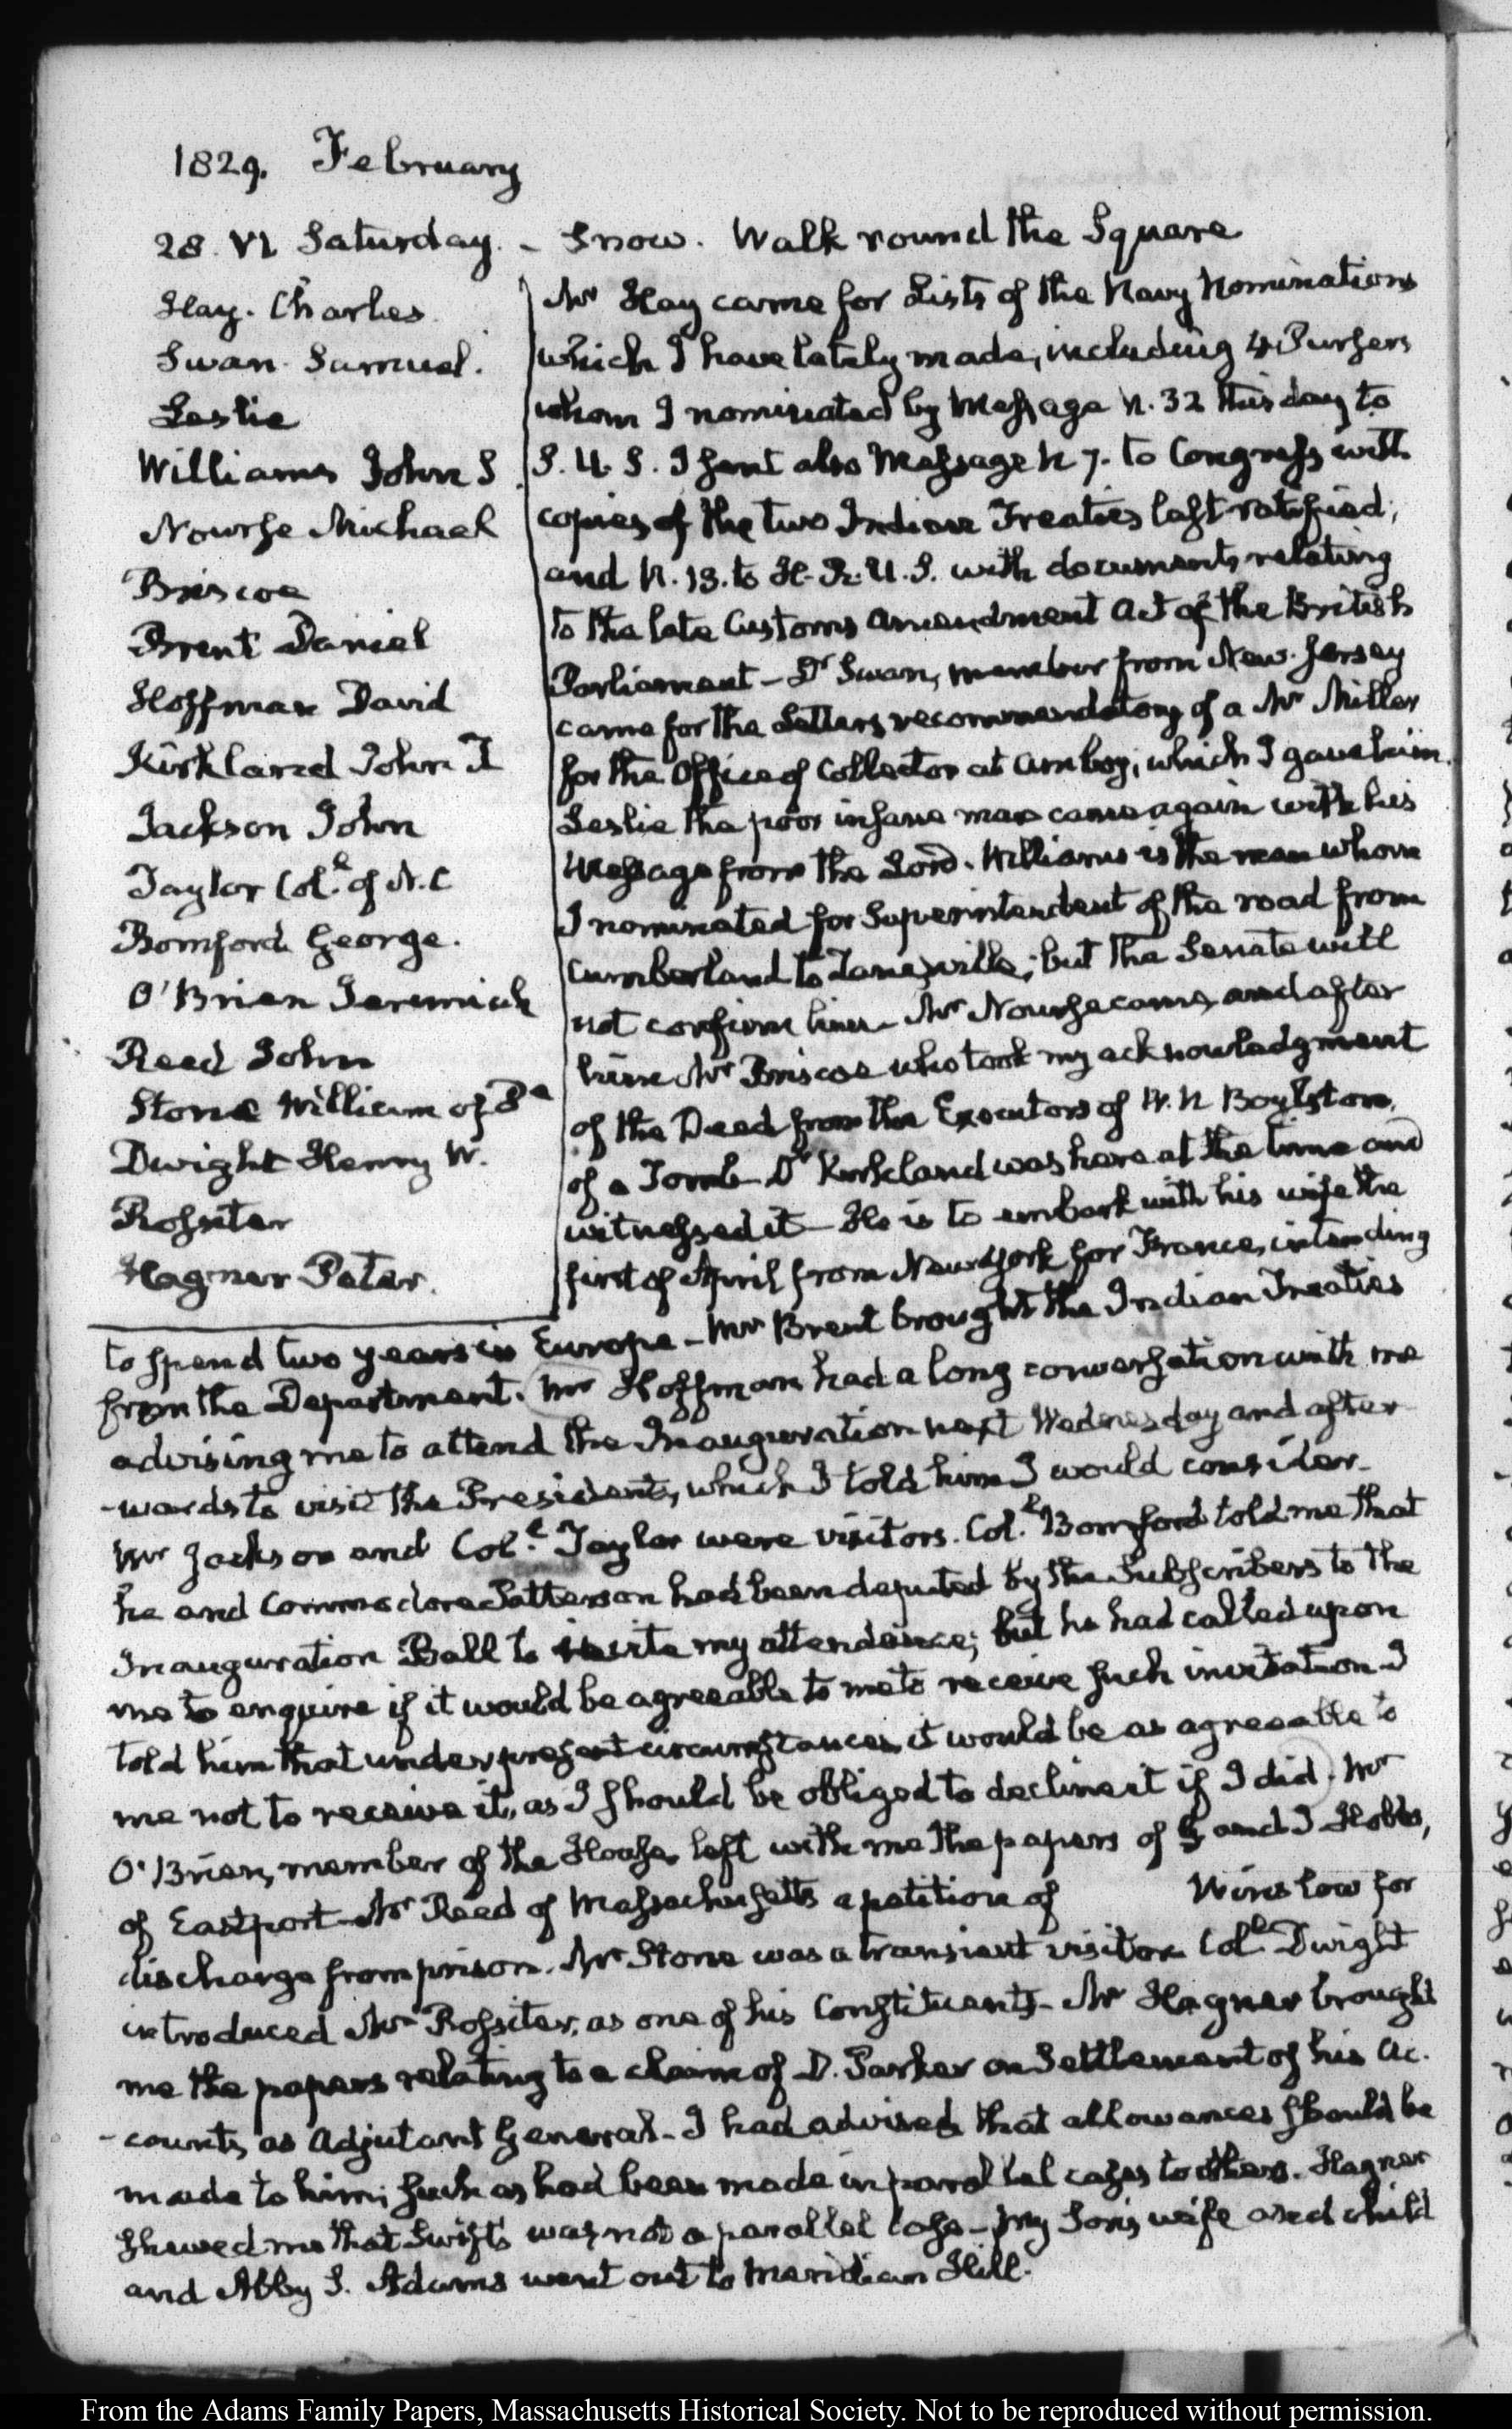 1829. February
28. VI. Saturday. - Snow. Walk round the Square
Hay. Charles
Swan. Samuel.
Leslie
Williams John S
Nourse Michael
Briscoe
Brent Daniel
Hoffman David
Kirkland John T
Jackson John
Taylor Col.l of N.C
Bomford George.
O'Brien Jeremiah
Reed John
Stone William of
Dwight Henry W.
Rossiter
Hagner Peter.
Mr Hay came for Lists of the Navy Nominations
which I have lately made, including 4 Pursers
whom I nominated by Message N. 32 this day to
S. U. S. I sent also Message N 7. to Congress with
copies of the two Indian Treaties last ratified;
and N. 13. to H. R. U. S. with documents relating
to the late Customs Amendment Act of the British
Parliament - Dr Swan, member from New-Jersey
came for the Letters recommendatory of a Mr Miller
for the Office of Collector at Amboy; which I gave him.
Leslie the poor insane man came again with his
Message from the Lord. Williams is the man whom
I nominated for Superintendent of the road from
Cumberland to Zanesville; but the Senate will
not confirm him - Mr Nourse came, and after
him Mr Briscoe who took my acknowledgment
of the Deed from the Executors of W. N Boylston,
of a Tomb - Dr Kirkland was here at the time and
witnessed it - He is to embark with his wife the
first of April from New-York for France, intending
to spend two years in Europe - Mr Brent brought the Indian Treaties
from the Department. Mr Hoffman had a long conversation with me
advising me to attend the Inauguration next Wednesday and after
-wards to visit the President, which I told him I would consider.
Mr Jackson and Col.l Taylor were visitors. Col.l Bomford told me that
he and Commodore Patterson had been deputed by the Subscribers to the
Inauguration Ball to invite my attendance; but he had called upon
me to enquire if it would be agreeable to me to receive such invitation I
told him that under present circumstances it would be as agreeable to
me not to receive it, as I should be obliged to decline it if I did. Mr
O'Brien, member of the House, left with me the papers of and I Hobbs,
of Eastport - Mr Reed of Massachusetts a petition of Winslow for
discharge from prison. Mr Stone was a transient visitor Col.l Dwight
introduced Mr Rossiter, as one of his Constituents - Mr Hagner brought
me the papers relating to a claim of D. Parker on Settlement of his Ac.
-counts, as Adjutant General - I had advised that allowances should be
made to him; such as had been made in parallel cases to others. Hagner
shewed me that Swift's was not a parallel case - My Son's wife and child
and Abby S. Adams went out to Meridian Hill.
From the Adams Family Papers, Massachusetts Historical Society. Not to be reproduced without permission.